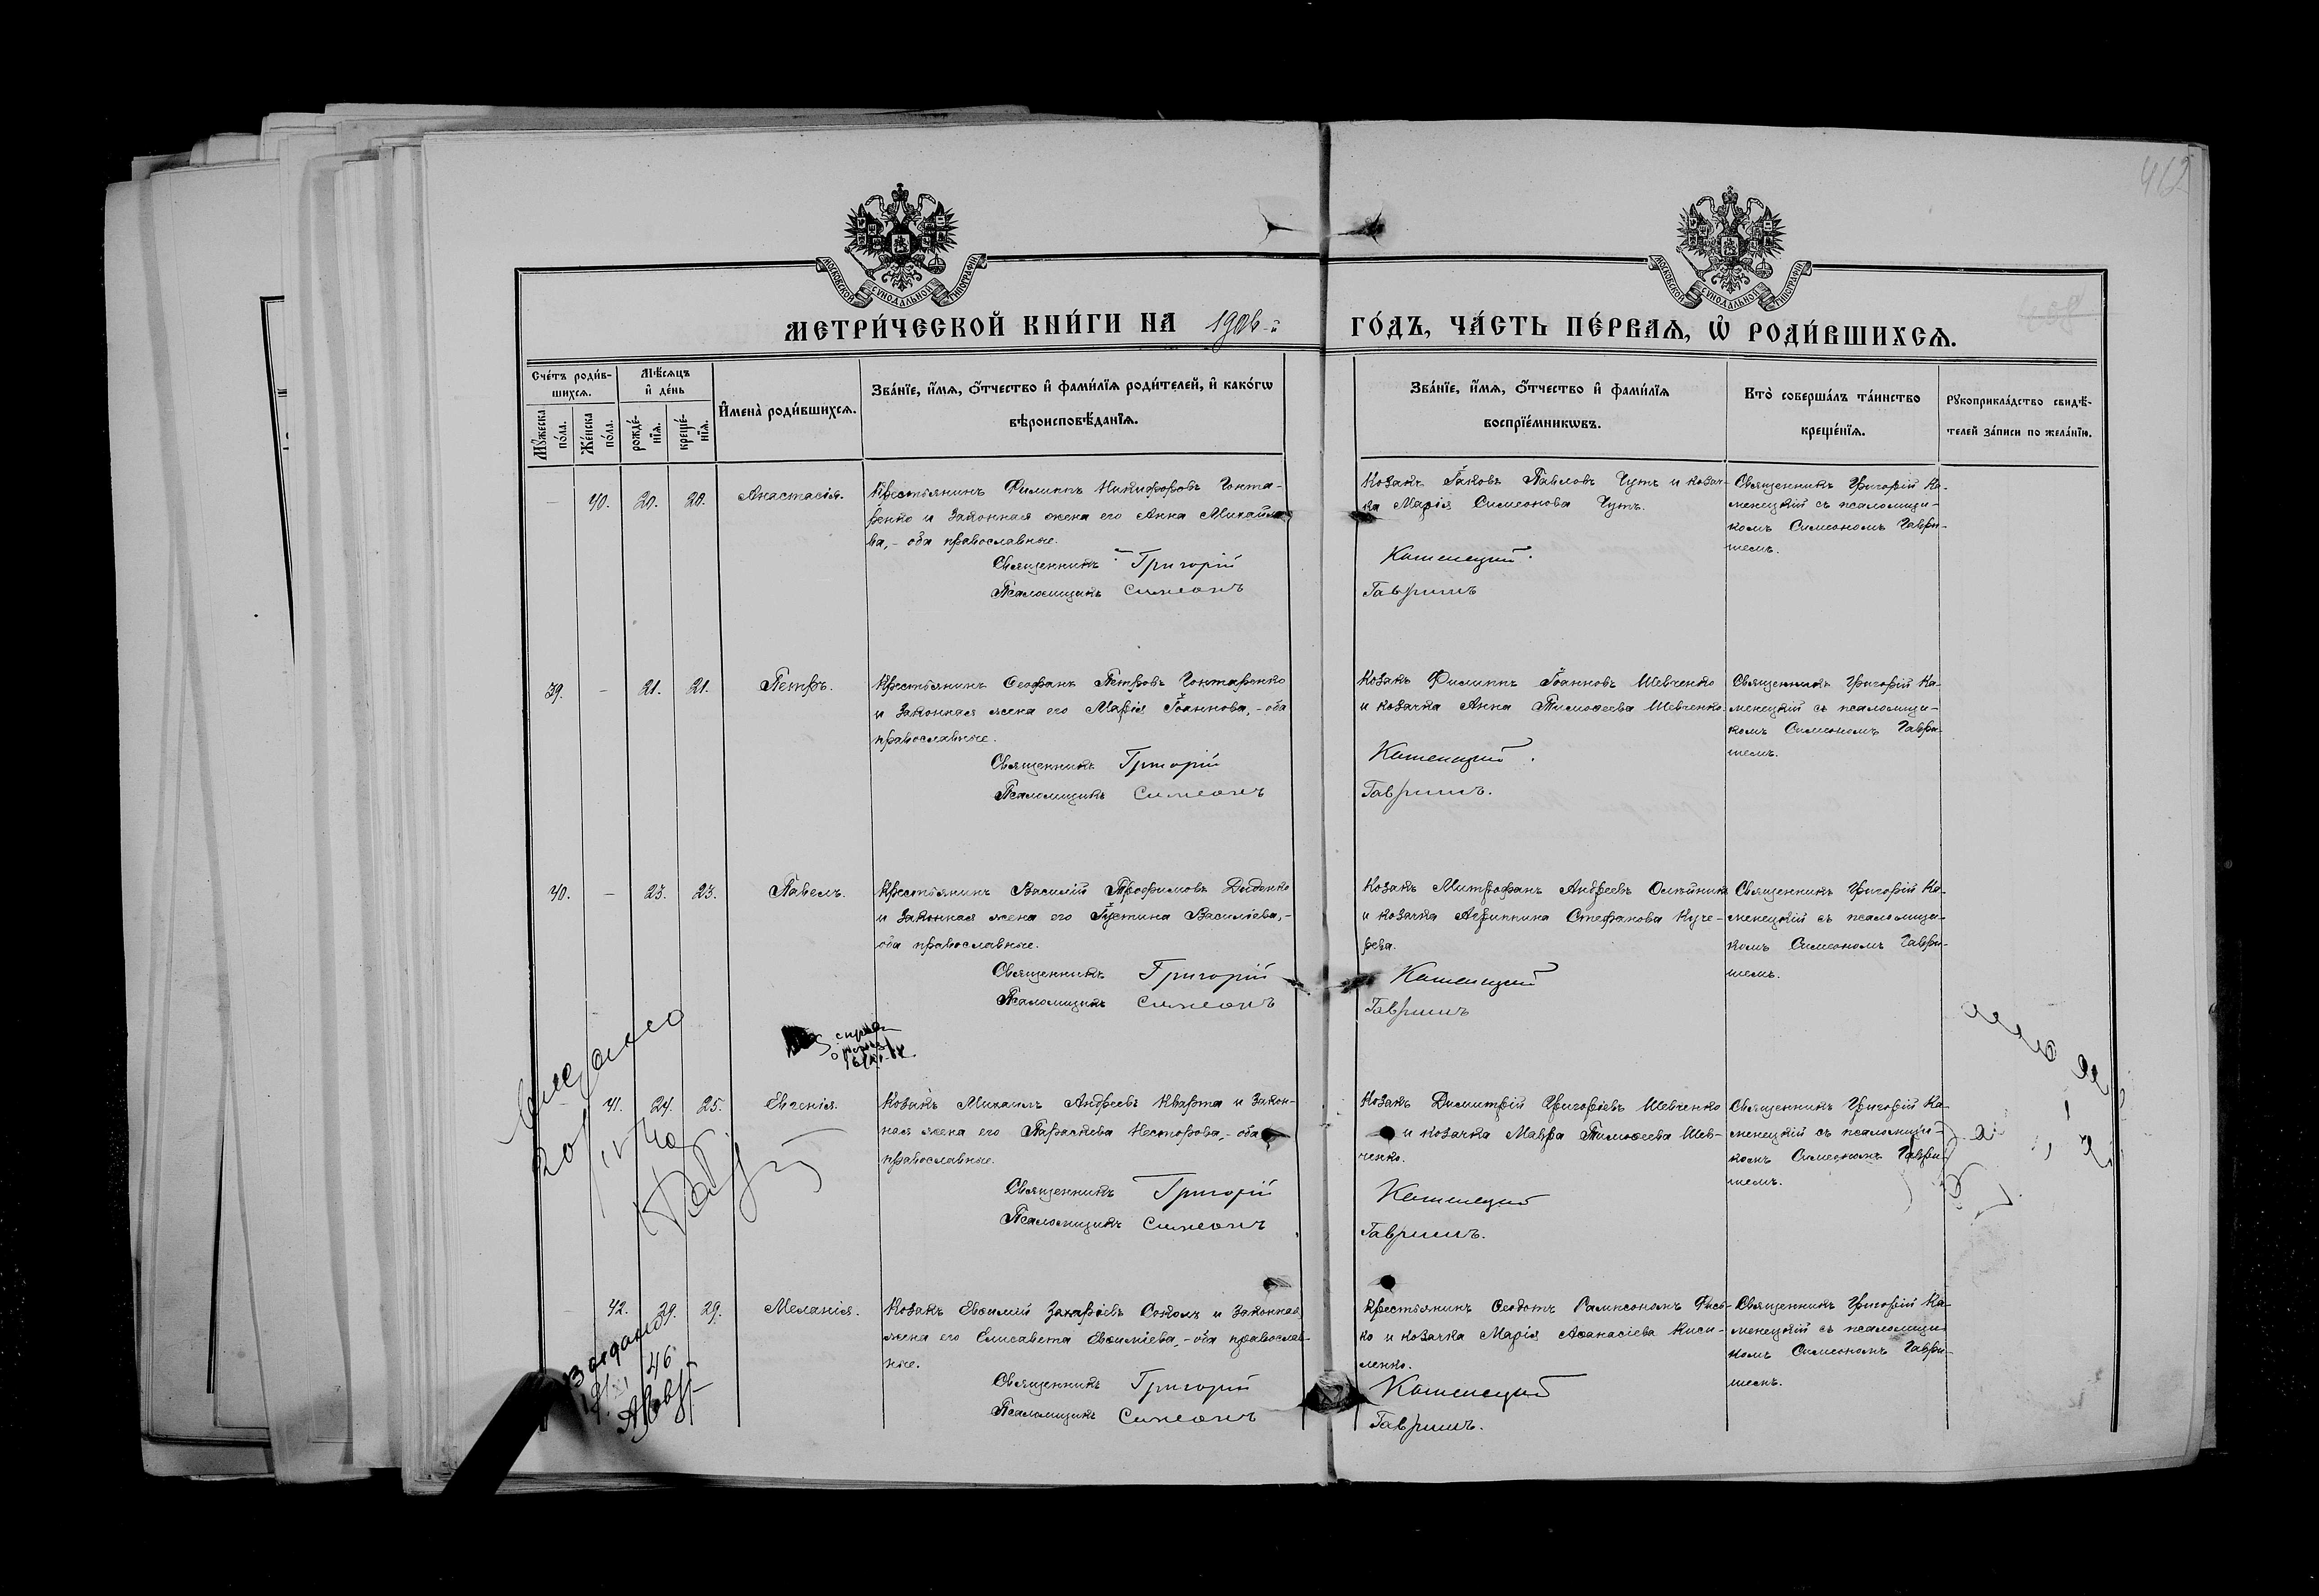 412
МОСКОВСКОЙ СѴНОДАЛЬНОЙ ТИПОГРАФІИ
МОСКОВСКОЙ СѴНОДАЛЬНОЙ ТИПОГРАФІИ
МЕТРИ́ЧЕСКОЙ КНИ́ГИ НА 1906
ГО́ДЪ, ЧА́СТЬ ПЕ́РВАѦ, Ѡ РОДИ́ВШИХСѦ.
Сче́тъ роди́в-
шихсѧ.
Мꙋ́жеска по́ла.
Же́нска по́ла.
Мѣ́сѧцъ
и҆ де́нь
рожде́-
нїѧ.
креще́-
нїѧ.
И҆мена̀ роди́вшихсѧ.
Зва́нїе, и҆́мѧ, ѻ҆́тчество и҆ фами́лїѧ роди́телей, и҆ како́гѡ
вѣроисповѣ́данїѧ.
Зва́нїе, и҆́мѧ, ѻ҆́тчество и҆ фами́лїѧ
воспрїе́мникѡвъ.
Кто̀ соверша́лъ та́инство
креще́нїѧ.
Рꙋкоприкла́дство свидѣ́-
телей за́писи по жела́нїю.
— 40. 20. 20. Анастасія.
Крестьянинъ Филиппъ Никифоровъ Гонта-
ренко и законная жена его Анна Михайло
ва, - оба православные.
Священникъ Григорій Каменецкий.
Псаломщикъ Симеонъ Гавришъ
Козакъ Іаковъ Павловъ Чутъ и козач-
ка Марія Симеонова Чутъ.
Священникъ Григорій Ка-
менецкій съ псаломщи-
комъ Симеономъ Гаври-
шемъ.
39. — 21. 21. Петръ.
Крестьянинъ Ѳеофанъ Петровъ Гонтаренко
и законная жена его Марія Іоаннова, - оба
православные.
Священникъ Григорій Каменецкий.
Псаломщикъ Симеонъ Гавришъ.
Козакъ Филиппъ Іоанновъ Шевченко
и козачка Анна Тимоѳеева Шевченко.
Священникъ Григорій Ка-
менецкій съ псаломщи-
комъ Симеономъ Гаври-
шемъ.
40. — 23. 23. Павелъ.
Крестьянинъ Василій Трофимовъ Диденко
и законная жена его Іустина Василіева, -
оба православные.
Священникъ Григорій Каменецкий
Псаломщикъ Симеонъ Гавришъ
Козакъ Митрофанъ Андреевъ Олѣйникъ
и козачка Агриппина Стефанова Куче-
рева.
Священникъ Григорій Ка-
менецкій съ псаломщи-
комъ Симеономъ Гаври-
шемъ.
41. 24. 25. Евгенія.
Козакъ Михаилъ Андреевъ Кварта и закон-
ная жена его Параскева Несторова, - оба
православные.
Священникъ Григорій Каменецкий
Псаломщикъ Симеонъ Гавришъ.
Козакъ Димитрій Григоріевъ Шевченко
и козачка Мавра Тимоѳеева Шев-
ченко.
Священникъ Григорій Ка-
менецкій съ псаломщи-
комъ Симеономъ Гаври-
шемъ.
42. 29. 29. Меланія.
Козакъ Евѳимій Захаріевъ Соколъ и законная
жена его Елисавета Евѳиміева, - оба православ-
ные.
Священникъ Григорій Каменецкий
Псаломщикъ Симеонъ Гавришъ.
ко и козачка Марія Аѳанасіева Киси-
ленко.
Священникъ Григорій Ка-
менецкій съ псаломщи-
комъ Симеономъ Гаври-
шемъ.